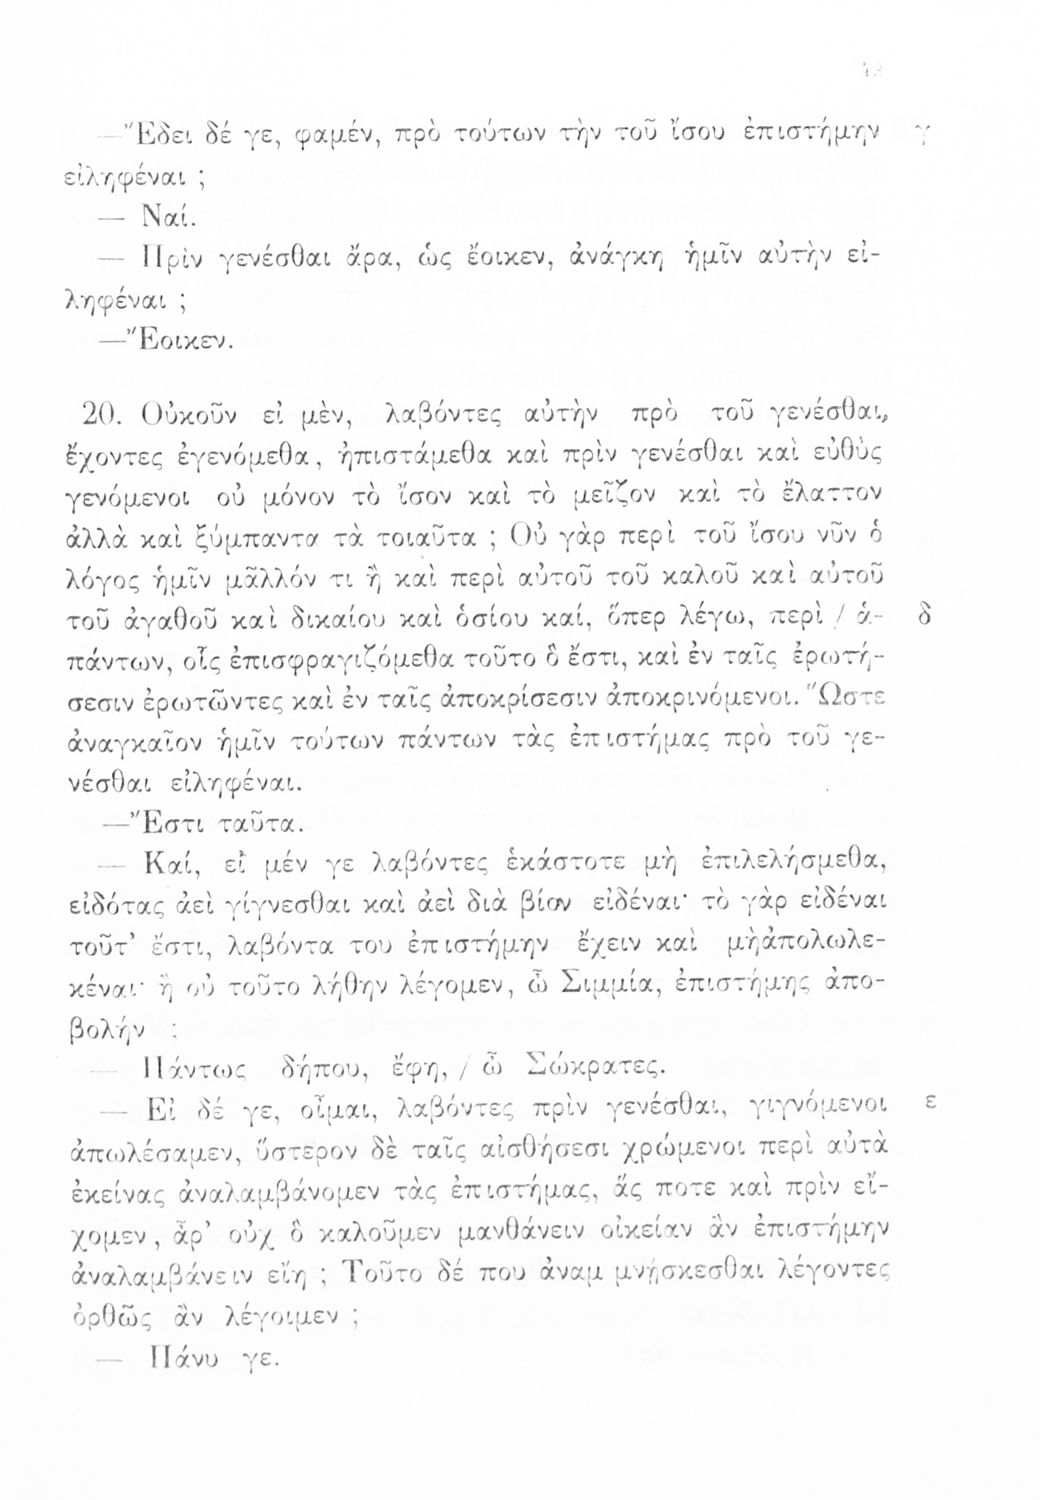 —"Εδει δέ γε, φαμέν, πρὸ τούτων τὴν τοῦ ἴσου ἐπιστήμην γ
εἰληφέναι ;
— Ναί.
— Πρὶν γενέσθαι ἄρα, ὡς ἔοικεν, ἀνάγκη ἡμῖν αὐτὴν εἰ-
ληφέναι ;
—"Εοικεν.
20. Οὐκοῦν εἰ μὲν, λαβόντες αὐτὴν πρὸ τοῦ γενέσθαι,
ἔχοντες ἐγενόμεθα, ἠπιστάμεθα καὶ πρὶν γενέσθαι καὶ εὐθὺς
γενόμενοι οὐ μόνον τὸ ἴσον καὶ τὸ μεῖζον καὶ τὸ ἔλαττον
ἀλλὰ καὶ ξύμπαντα τὰ τοιαῦτα ; Οὐ γὰρ περὶ τοῦ ἴσου νῦν ὁ
λόγος ἡμῖν μᾶλλόν τι ἢ καὶ περὶ αὐτοῦ τοῦ καλοῦ καὶ αὐτοῦ
τοῦ ἀγαθοῦ καὶ δικαίου καὶ ὁσίου καί, ὅπερ λέγω, περὶ / ἁ- δ
πάντων, οἷς ἐπισφραγιζόμεθα τοῦτο ὃ ἔστι, καὶ ἐν ταῖς ἐρωτή-
σεσιν ἐρωτῶντες καὶ ἐν ταῖς ἀποκρίσεσιν ἀποκρινόμενοι. "Ωστε
ἀναγκαῖον ἡμῖν τούτων πάντων τὰς ἐπιστήμας πρὸ τοῦ γε-
νέσθαι εἰληφέναι.
—"Εστι ταῦτα.
— Καί, εἰ μέν γε λαβόντες ἑκάστοτε μὴ ἐπιλελήσμεθα,
εἰδότας ἀεὶ γίγνεσθαι καὶ ἀεὶ διὰ βίου εἰδέναι· τὸ γὰρ εἰδέναι
τοῦτ' ἔστι, λαβόντα του ἐπιστήμην ἔχειν καὶ μὴἀπολωλε-
κέναι· ἢ οὐ τοῦτο λήθην λέγομεν, ὦ Σιμμία, ἐπιστήμης ἀπο-
βολήν ;
— Πάντως δήπου, ἔφη, / ὦ Σώκρατες.
— Εἰ δέ γε, οἶμαι, λαβόντες πρὶν γενέσθαι, γιγνόμενοι ε
ἀπωλέσαμεν, ὕστερον δὲ ταῖς αἰσθήσεσι χρώμενοι περὶ αὐτὰ
ἐκείνας ἀναλαμβάνομεν τὰς ἐπιστήμας, ἅς ποτε καὶ πρὶν εἴ-
χομεν, ἆρ' οὐχ ὃ καλοῦμεν μανθάνειν οἰκείαν ἂν ἐπιστήμην
ἀναλαμβάνειν εἴη ; Τοῦτο δέ που ἀναμιμνῄσκεσθαι λέγοντες
ὀρθῶς ἂν λέγοιμεν ;
— Πάνυ γε.